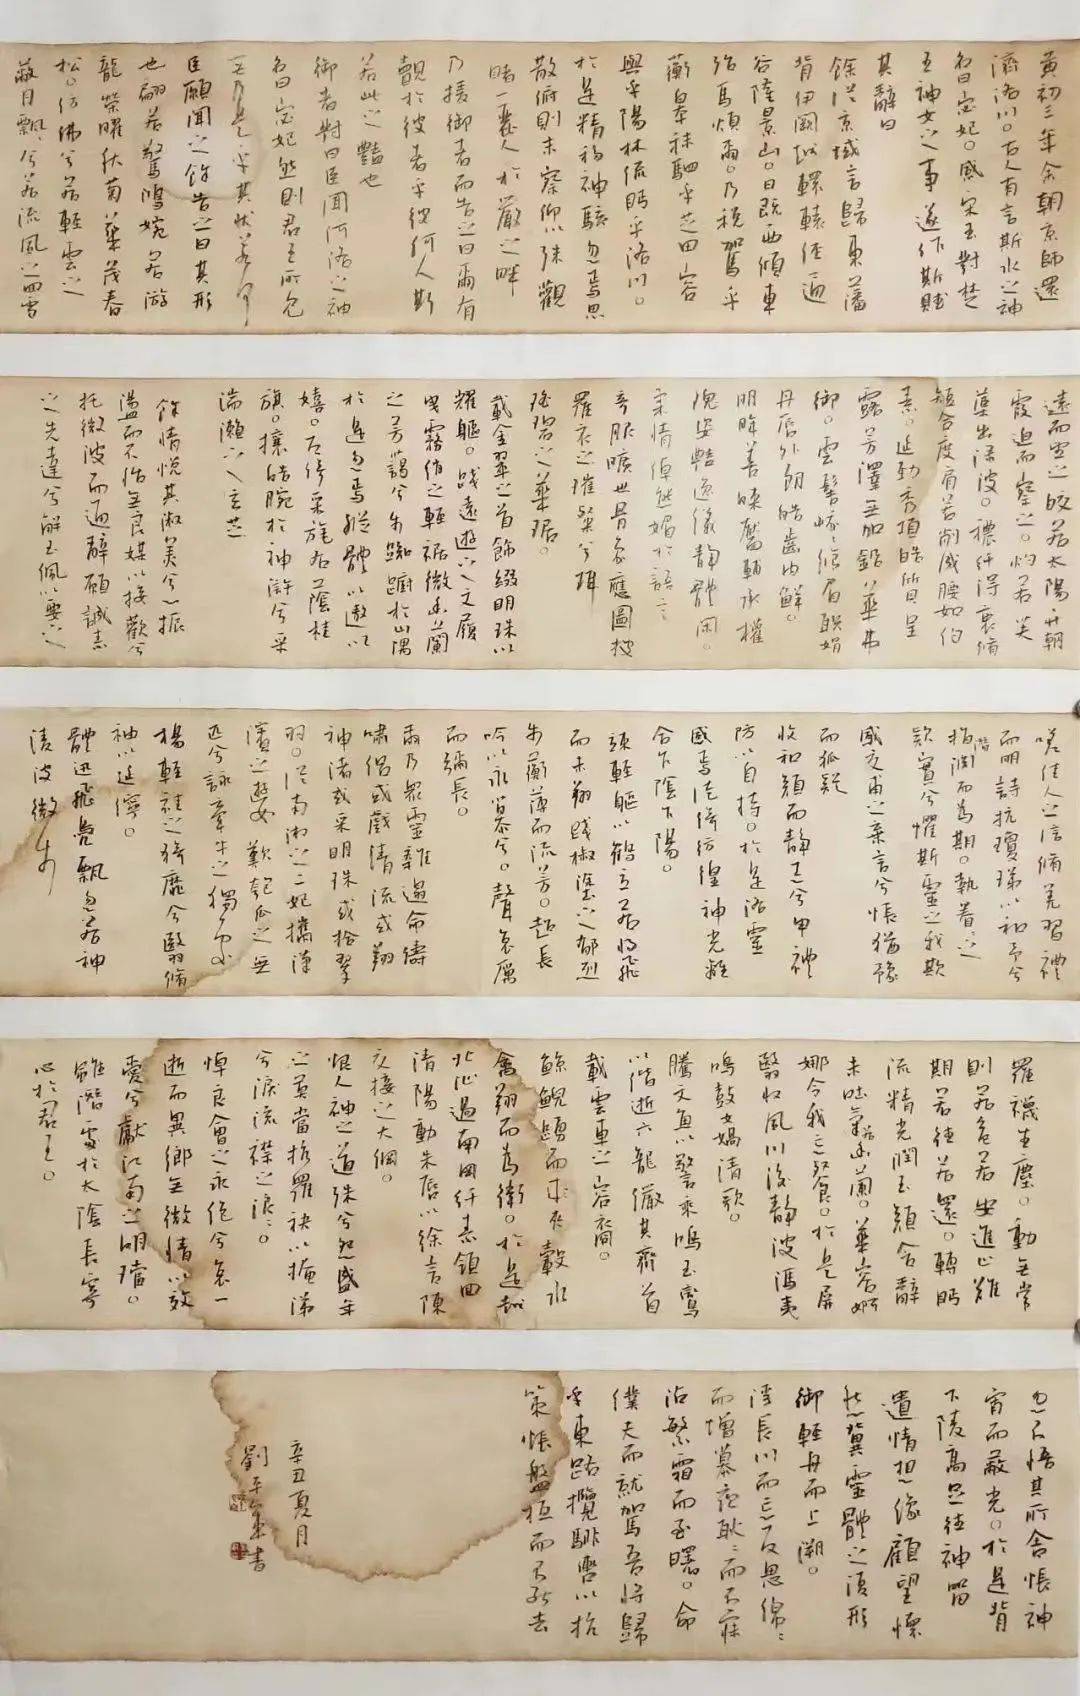 黃初三年余朝京師還
濟洛川古人有言斯水之神
名曰宓妃感宋玉對楚
王神女之事遂作斯賦
其辭曰
余從京域言歸東藩
背伊闕越轘轅經通
谷陵景山日既西傾車
殆馬煩爾乃稅駕乎
蘅皋秣駟乎芝田容
與乎陽林流眄乎洛川
於是精移神駭忽焉思
散俯則未察仰以殊觀
睹一麗人於巖之畔
乃援御者而告之曰爾有
覿於彼者乎彼何人斯
若此之豔也
御者對曰臣聞河洛之神
名曰宓妃然則君王所見
無乃是乎其狀若何
臣願聞之余告之曰其形
也翩若驚鴻婉若游
龍榮曜秋菊華茂春
松仿佛兮若輕雲之
蔽月飄兮若流風之回雪
遠而望之皎若太陽升朝
霞迫而察之灼若芙
蕖出淥波穠纖得衷脩
短合度肩若削成腰如約
素延頸秀項皓質呈
露芳澤無加鉛華弗
御雲髻峩峩脩眉聯娟
丹脣外朗皓齒內鮮
明眸善睞靨輔承權
瑰姿豔逸儀靜體閑
柔情綽態媚於語言
奇服曠世骨象應圖披
羅衣之璀粲兮珥
瑤碧之華琚
戴金翠之首飾綴明珠以
耀軀踐遠遊之文履
曳霧綃之輕裾微幽蘭
之芳藹兮步踟躕於山隅
於是忽焉縱體以遨以
嬉左倚采旄右蔭桂
旗攘皓腕於神滸兮采
湍瀨之玄芝
余情悅其淑美兮心振
蕩而不怡無良媒以接歡兮
托微波而通辭願誠素
之先達兮解玉佩以要之
嗟佳人之信脩羌習禮
而明詩抗瓊珶以和予兮
指潛淵而為期執眷眷之
款實兮懼斯靈之我欺
感交甫之棄言兮悵猶豫
而狐疑
收和顏而靜志兮申禮
防以自持於是洛靈
感焉徙倚彷徨神光離
合乍陰乍陽
竦輕軀以鶴立若將飛
而未翔踐椒塗之郁烈
步蘅薄而流芳超長
吟以永慕兮聲哀厲
而彌長
爾乃眾靈雜遝命儔
嘯侶或戲清流或翔
神渚或采明珠或拾翠
羽從南湘之二妃攜漢
濱之遊女歎匏瓜之無
匹兮詠牽牛之獨處
揚輕袿之猗靡兮翳脩
袖以延佇
體迅飛鳧飄忽若神
淩波微步
羅襪生塵動無常
則若危若安進止難
期若往若還轉眄
流精光潤玉顏含辭
未吐氣若幽蘭華容婀
娜令我忘餐於是屏
翳收風川后靜波馮夷
鳴鼓女媧清歌
騰文魚以警乘鳴玉鸞
以偕逝六龍儼其齊首
載雲車之容裔
鯨鯢踴而夾轂水
禽翔而為衛於是越
北沚過南岡紆素領回
清陽動朱脣以徐言陳
交接之大綱
恨人神之道殊兮怨盛年
之莫當抗羅袂以掩涕
兮淚流襟之浪浪
悼良會之永絕兮哀一
逝而異鄉無微情以效
愛兮獻江南之明璫
雖潛處於太陰長寄
心於君王
忽不悟其所舍悵神
宵而蔽光於是背
下陵高足往神留
遺情想像顧望懷
愁冀靈體之復形
御輕舟而上溯
浮長川而忘反思綿綿
而增慕夜耿耿而不寐
沾繁霜而至曙命
僕夫而就駕吾將歸
乎東路攬騑轡以抗
策悵盤桓而不能去
辛丑夏月
劉書